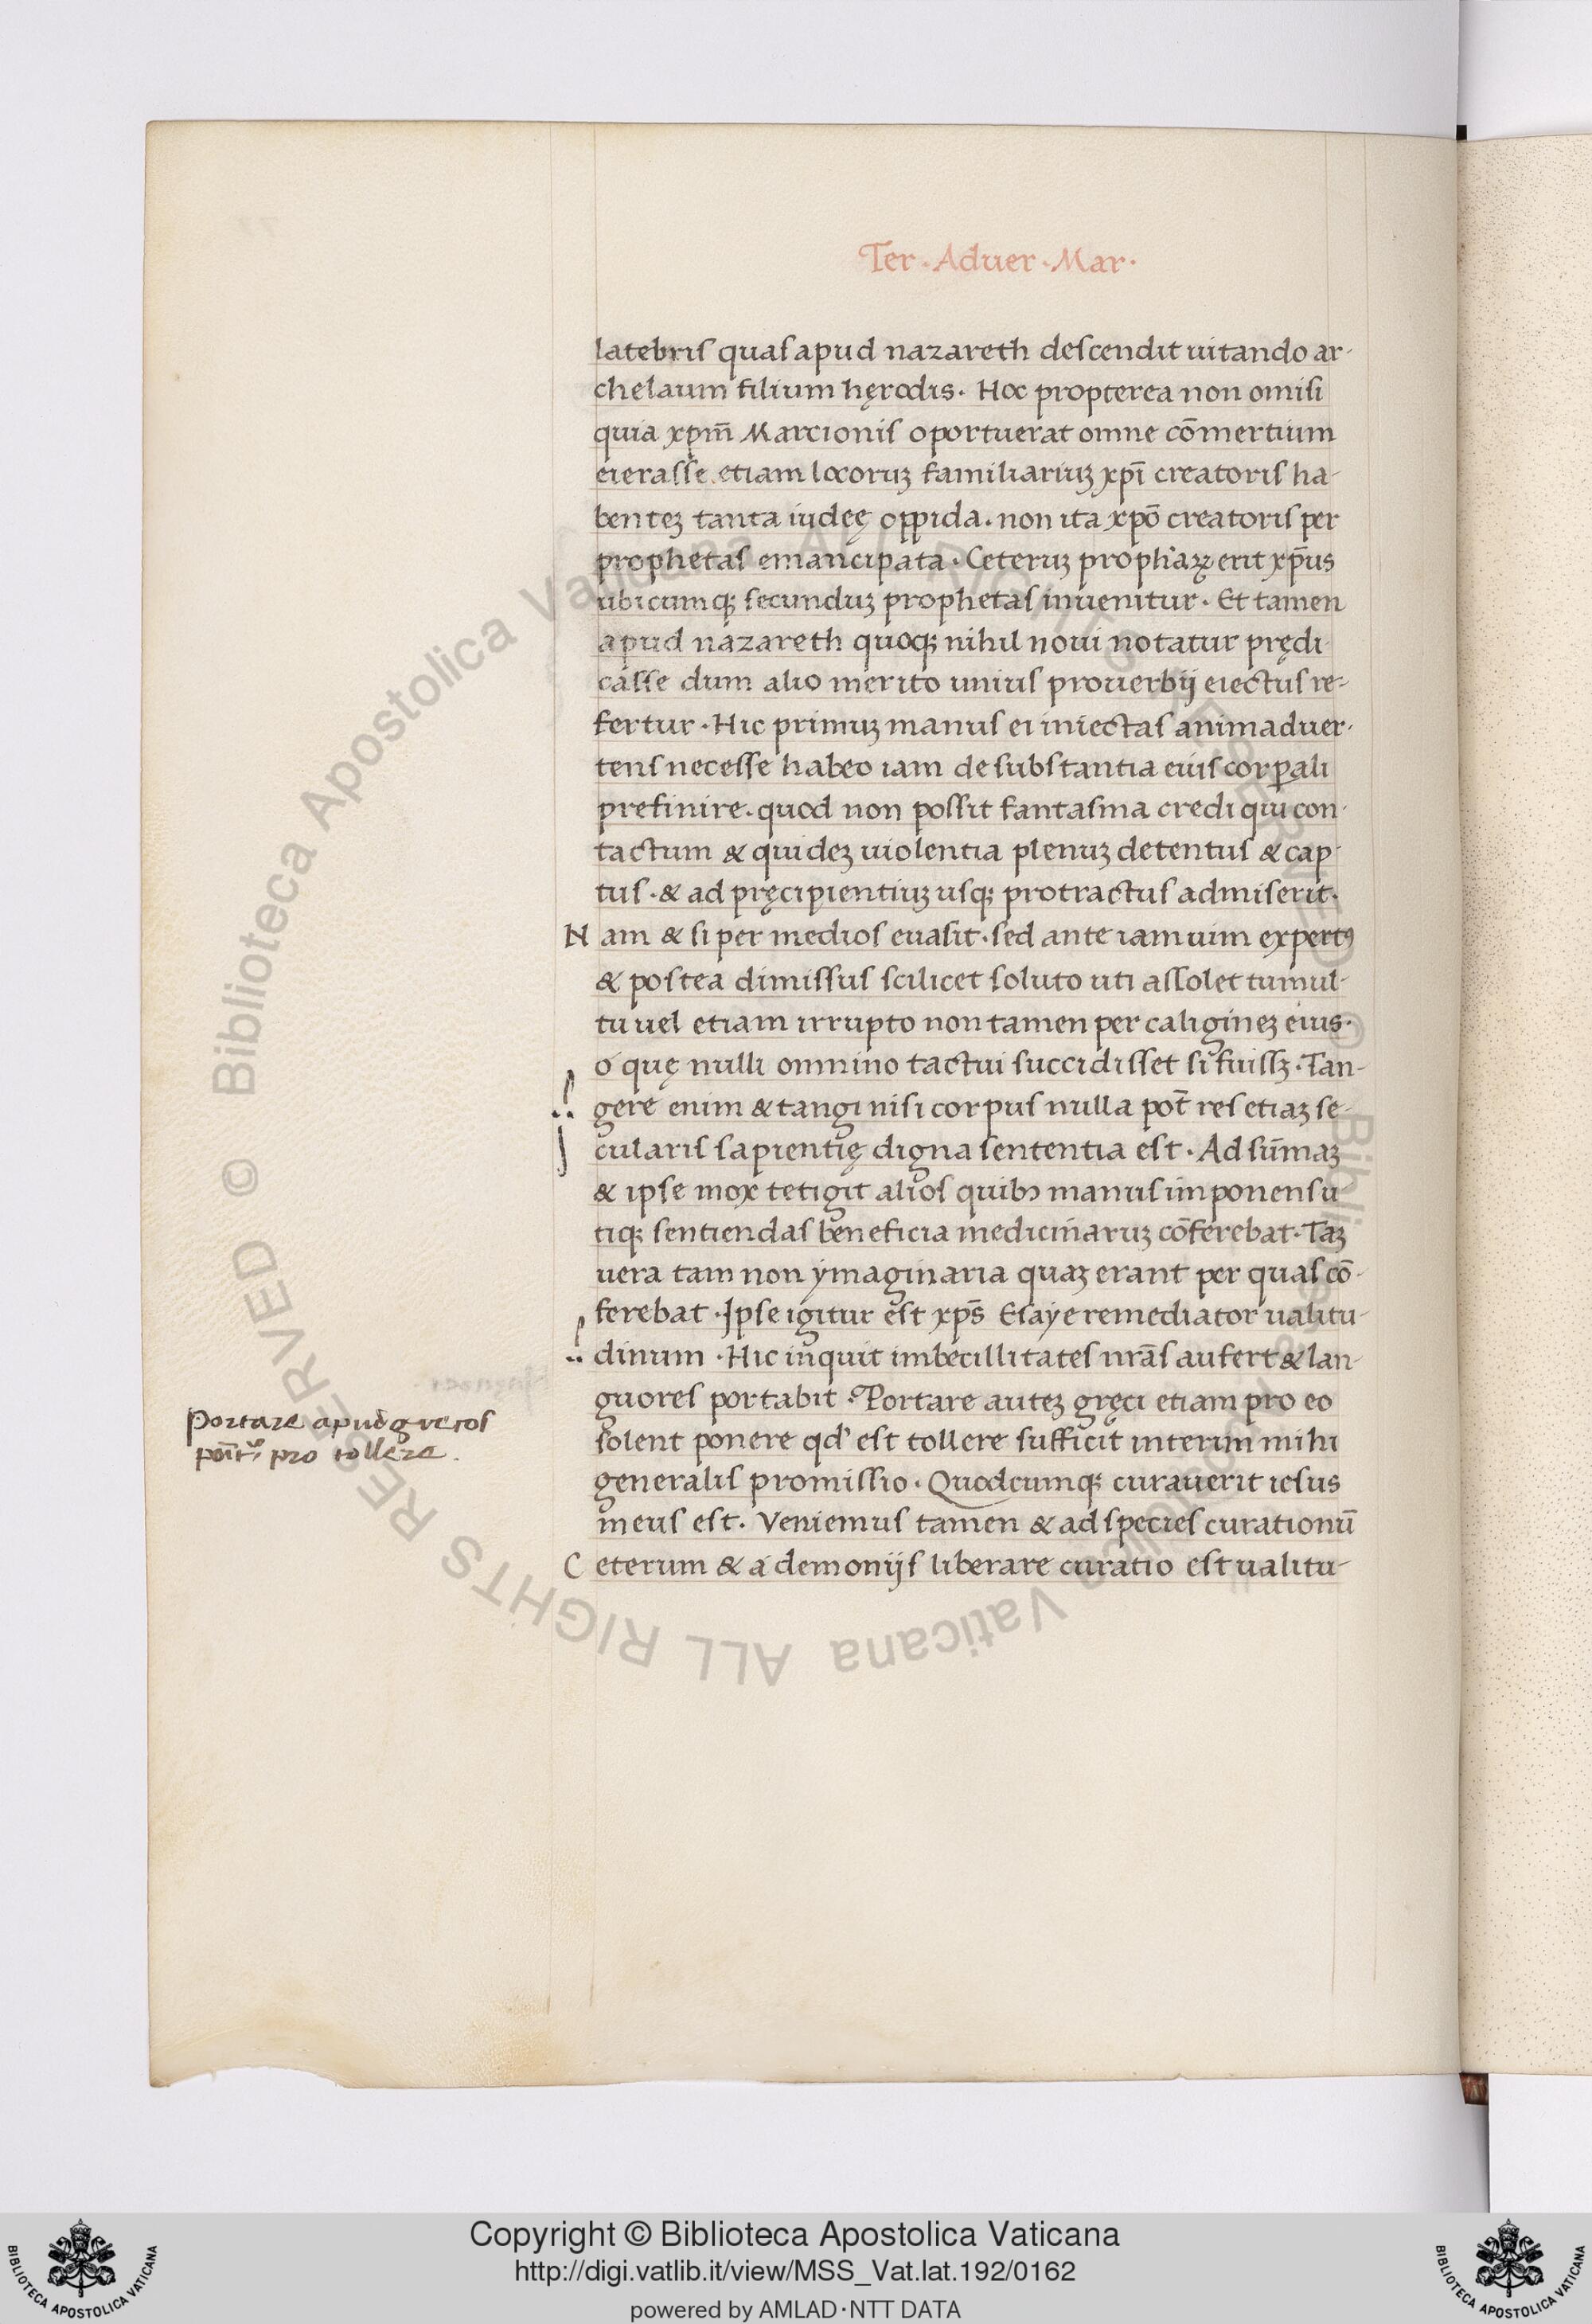 Ter · Aduer · Mar ·
latebris quas apud nazareth descendit uitando ar-
chelaum filium hęrodis · Hoc propterea non omisi
quia xpm̄ Marcionis oportuerat omne cōmertium
eierasse etiam locoruꝫ familiariuꝫ xpī creatoris ha-
benteꝫ tanta iudeę oppida · non ita xpō creatoris per
prophetas emancipata · Ceteruꝫ prophaꝝ erit xp̄us
ubicumqꝫ secunduꝫ prophetas inuenitur · Et tamen
apud nazareth quoqꝫ nihil noui notatur prędi-
casse dum alio merito unius prouerbij eiectus re-
fertur · Hic primuꝫ manus ei iniectas animaduer-
tens necesse habeo iam de substantia eius corꝑali
prefinire · quod non possit fantasma credi qui con-
tactum & quideꝫ uiolentia plenuꝫ detentus & cap-
tus · & ad pręcipientiuꝫ usqꝫ protractus admiserit ·
N am & si per medios euasit · sed ante iam uim expertꝰ
& postea dimissus scilicet soluto uti assolet tumul-
tu uel etiam irrupto non tamen per caligineꝫ eius ·
ó quę nulli omnino tactui succidisset si fuissꝫ · Tan-
gere enim & tangi nisi corpus nulla pot̄ res etiaꝫ se-
cularis sapientię digna sententia est · Ad sūmaꝫ
& ipse mox tetigit alios quibꝰ manus imponens u-
tiqꝫ sentiendas beneficia medicinaruꝫ cōferebat · Taꝫ
uera tam non ymaginaria quaꝫ erant per quas cō-
ferebat · Ipse igitur est xp̄s Esaye remediator ualitu-
dinum · Hic inquit imbecillitates nrās aufert & lan-
guores portabit · Portare auteꝫ gręci etiam pro eo
solent ponere qd' est tollere sufficit interim mihi
generalis promissio · Quodcumqꝫ curauerit iesus
meus est · Veniemus tamen & ad species curationū
C eterum & á demonijs liberare curatio est ualitu-
portare apud grecos
poīt' pro tollere .
© Biblioteca Apostolica Vaticana ALL RIGHTS RESERVED © Biblioteca Apostolica Vaticana ALL RIGHTS RESERVED
Copyright © Biblioteca Apostolica Vaticana
http://digi.vatlib.it/view/MSS_Vat.lat.192/0162
powered by AMLAD·NTT DATA
BIBLIOTECA APOSTOLICA VATICANA
BIBLIOTECA APOSTOLICA VATICANA